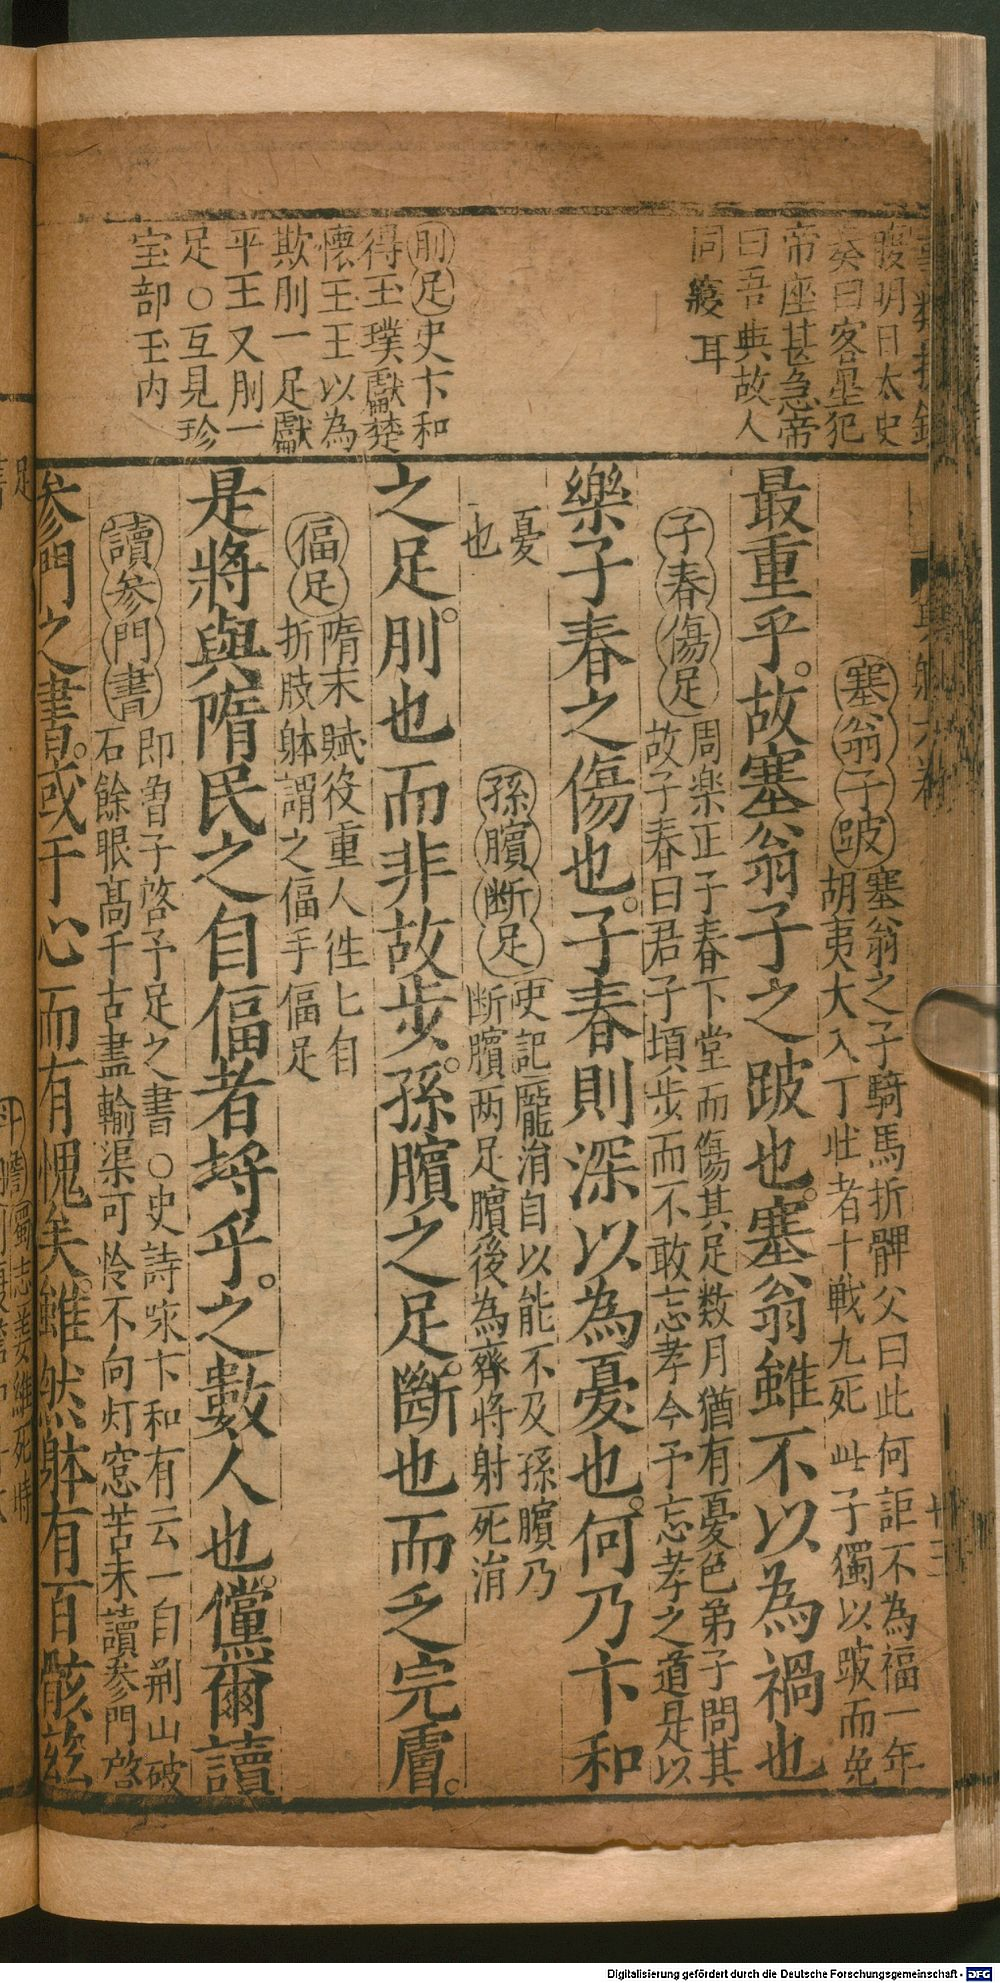 腹明日太史
奏曰客星犯
帝座甚急帝
曰吾與故人
同寢耳
刖足史卞和
得玉璞獻楚
懷王王以為
欺刖一足獻
平王又刖一
足○互見珍
宝部玉内
塞翁子跛塞翁之子騎馬折髀父曰此何詎不為福一年
胡夷大入丁壮者十戦九死此子獨以跛而免
最重乎。故塞翁子之跛也。塞翁雖不以為禍也
子春傷足周楽正子春下堂而傷其足数月猶有憂色弟子問其
故子春曰君子頃步而不敢忘孝今予忘孝之道是以
樂子春之傷也。子春則深以為憂也。何乃卞和
憂
也
孫臏断足史記龐涓自以能不及孫臏乃
断臏两足臏後為齊将射死涓
之足。刖也而非故步。孫臏之足。斷也而乏完膚。
偪足隋末賦役重人徃匕自
折肢躰謂之偪手偪足
是將與隋民之自偪者埒乎。之數人也。儻爾讀
讀参門書即曾子啓予足之書○史詩咏卞和有云一自荆山破
石餘眼高千古盡輸渠可怜不向灯窓苦未讀参門啓
参門之書。或于心而有愧矣。雖然躰有百骸兹
Digitalisierung gefördert durch die Deutsche Forschungsgemeinschaft - DFG